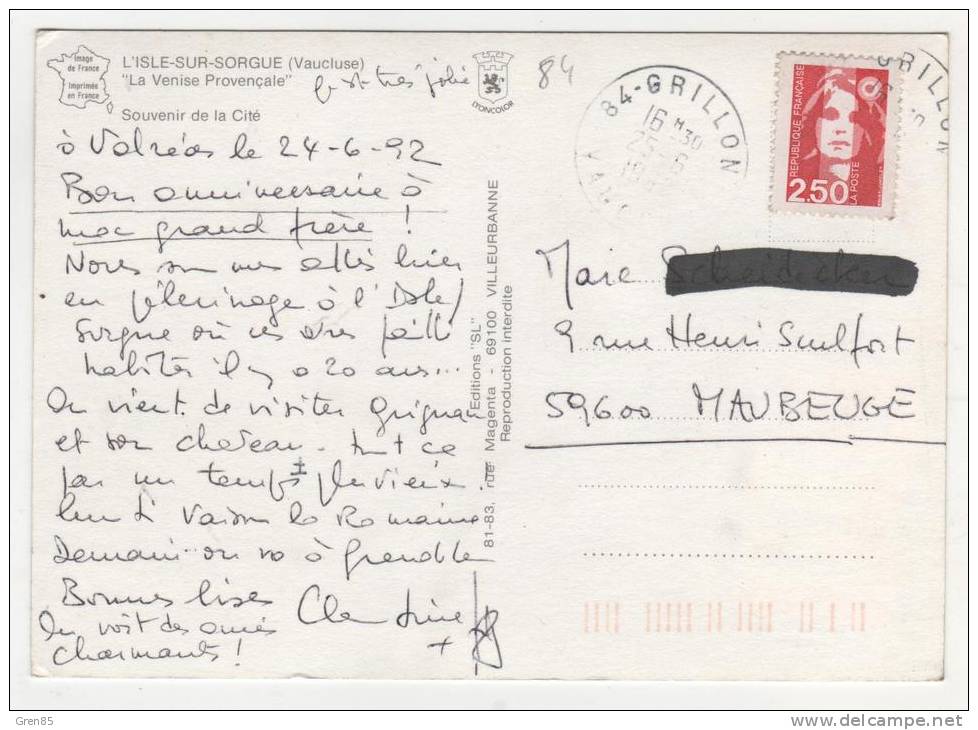 Image
de France
Imprimée
en France
L'ISLE-SUR-SORGUE (Vaucluse)
"La Venise Provençale"
très jolie
Souvenir de la Cité
LYONCOLOR
84
84-GRILLON
16 H30
25-6
GRILLON
REPUBLIQUE FRANÇAISE
2.50
LA POSTE
à Valréas le 24-6-92
Bon anniversaire à
mon grand frère !
Nous sommes allés hier
en pèlerinage à l'Isle/
Sorgue où ces petits
habités il y a 20 ans...
On vient de visiter Grignan
et son château. tout ce
par un temps ± pluvieux.
Vaison la Romaine
Demain on va à Grenoble
Bonnes bises Clémentine
On voit des amis
charmants !
+
Editions "SL"
81-83, rue Magenta - 69100 VILLEURBANNE
Reproduction interdite
Marie
9 rue Henri Sculfort
59600 MAUBEUGE
Gren85
www.delcampe.net